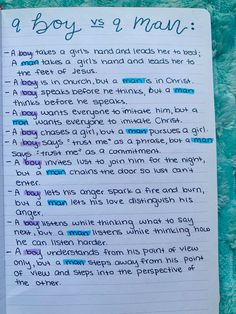 a boy vs a man:
- A boy takes a girl's hand and leads her to bed;
A man takes a girl's hand and leads her to
the feet of Jesus.
- A boy is in church, but a man is in Christ.
- A boy speaks before he thinks, but a man
thinks before he speaks.
- A boy wants everyone to imitate him, but a
man wants everyone to imitate Christ.
- A boy chases a girl, but a man pursues a girl.
- A boy says "trust me" as a phrase, but a man
says "trust me" as a commitment.
- A boy invites lust to join him for the night,
but a man chains the door so lust can't
enter.
- A boy lets his anger spark a fire and burn,
but a man lets his love distinguish his
anger.
- A boy listens while thinking what to say
next, but a man listens while thinking how
he can listen harder.
- A boy understands from his point of view
only, but a man steps away from his point
of view and steps into the perspective of
the other.